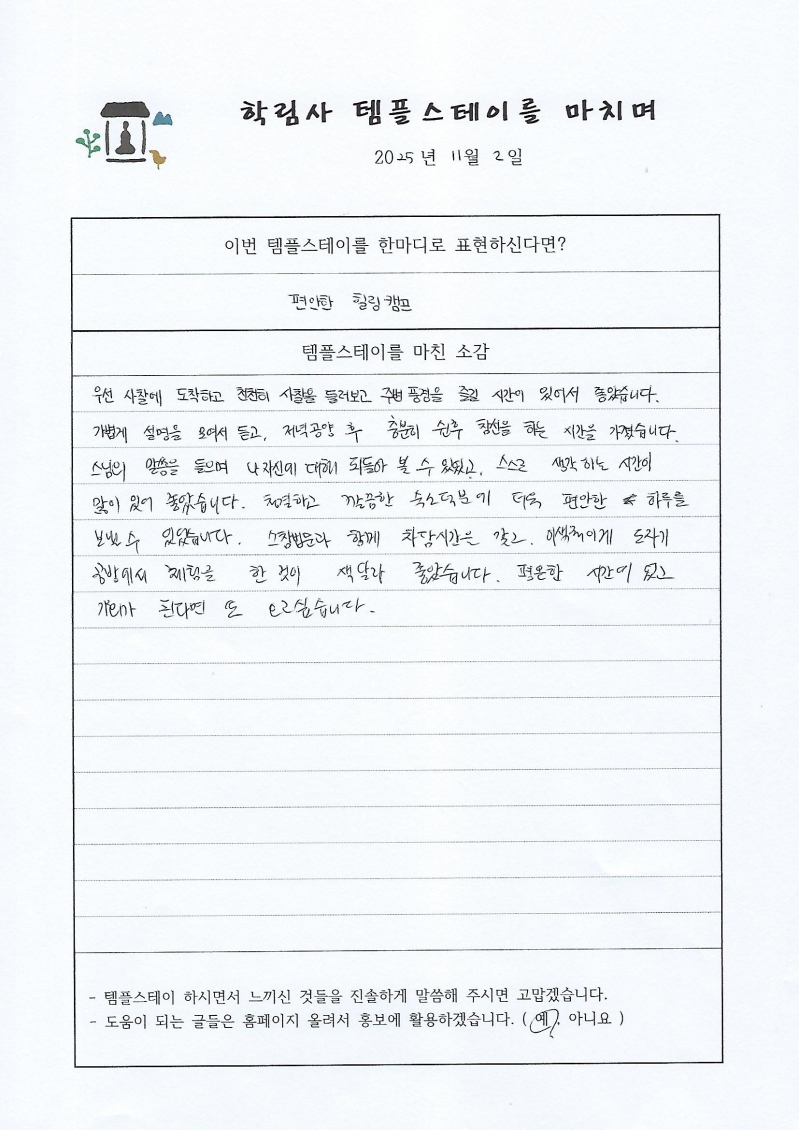 학림사 템플스테이를 마치며
2025년 11월 2일
이번 템플스테이를 한마디로 표현하신다면?
편안한 힐링캠프
템플스테이를 마친 소감
우선 사찰에 도착하고 천천히 사찰을 둘러보고 주변 풍경을 즐길 시간이 있어서 좋았습니다.
가볍게 설명을 모여서 듣고, 저녁공양 후 충분히 쉰후 참선을 하는 시간을 가졌습니다.
스님의 말씀을 들으며 나 자신에 대해 되돌아 볼 수 있었고, 스스로 생각하는 시간이
많이 있어 좋았습니다. 청결하고 깔끔한 숙소덕분에 더욱 편안한 하루를
보낼 수 있었습니다. 스창법문과 함께 차담시간은 갖고. 이색적이게 도자기
공방에서 체험을 한 것이 색달라 좋았습니다. 평온한 시간이 있고
기회가 된다면 또 오고싶습니다.
- 템플스테이 하시면서 느끼신 것들을 진솔하게 말씀해 주시면 고맙겠습니다.
- 도움이 되는 글들은 홈페이지 올려서 홍보에 활용하겠습니다. ( 예, 아니요 )